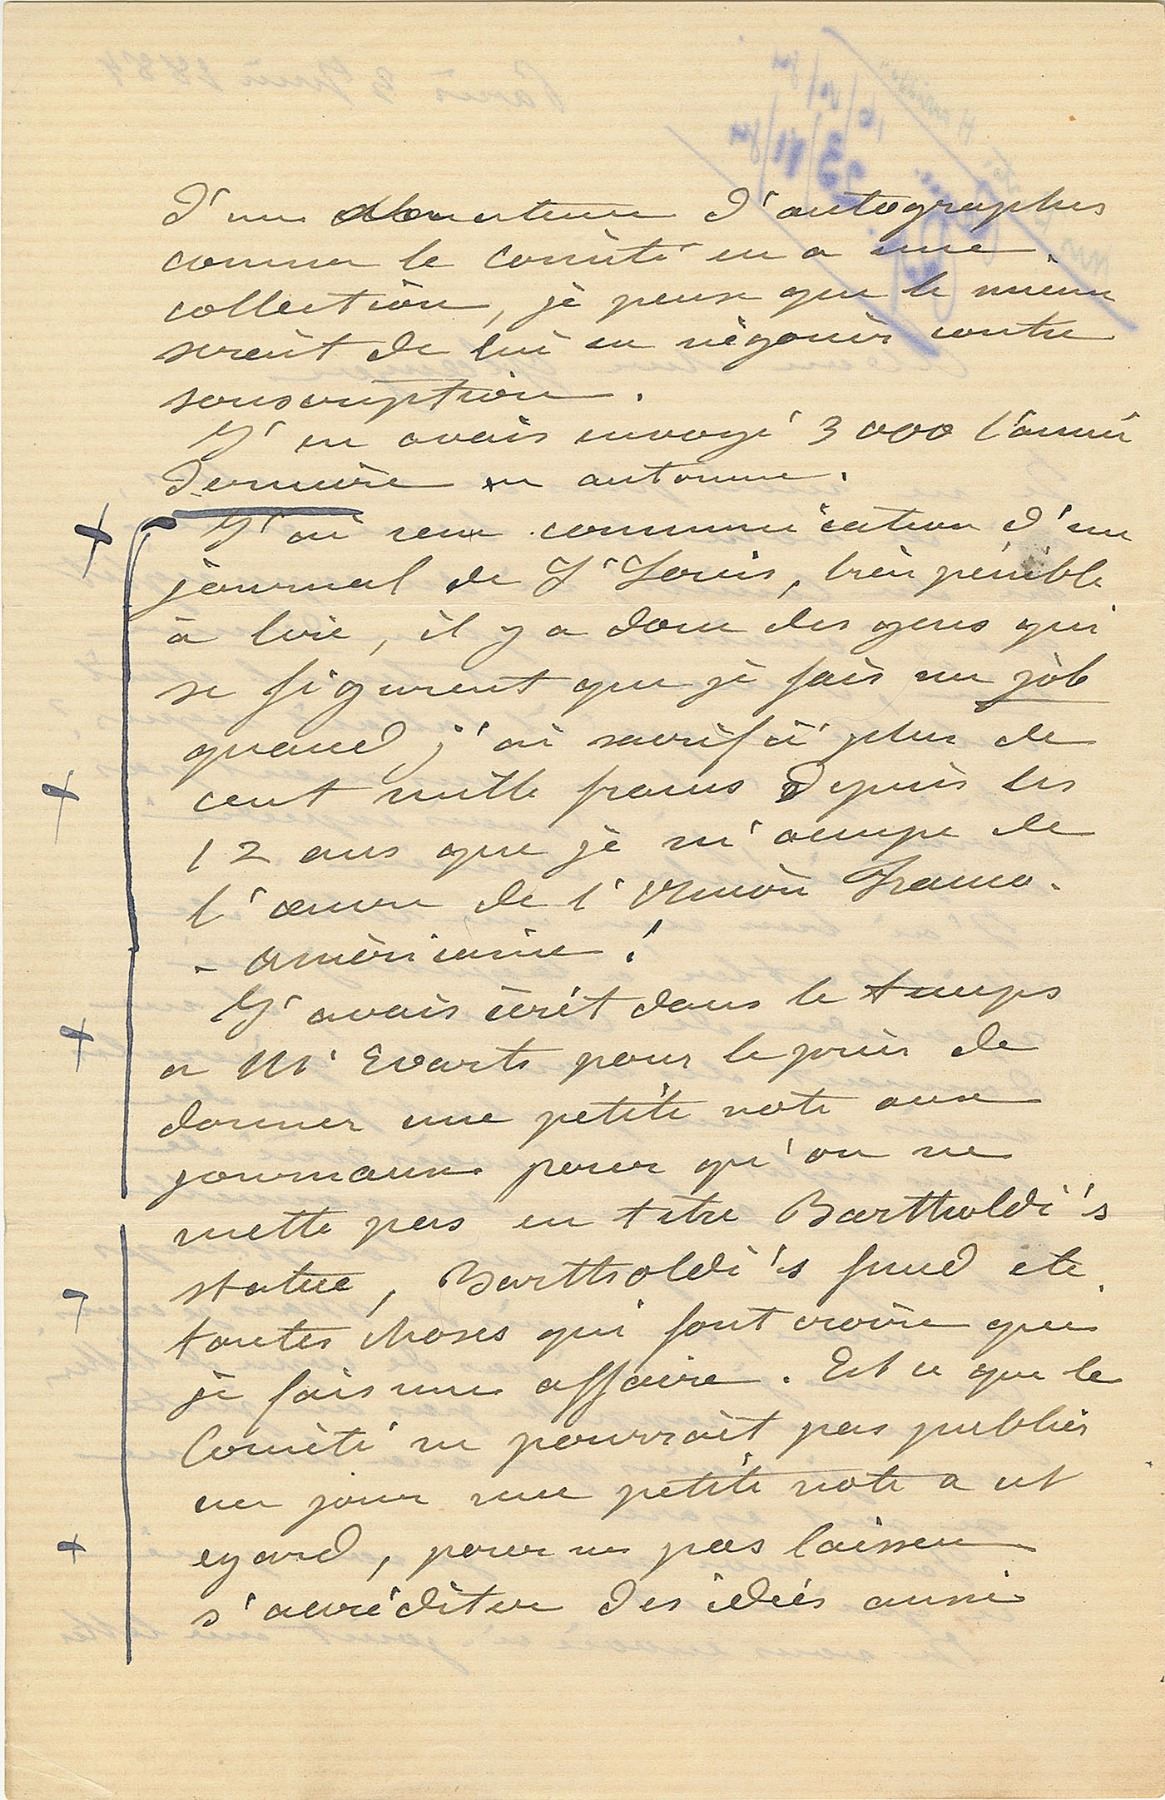 d'un amateur d'autographes
comme le Comité en a une
collection, je pense que le mieux
serait de lui en négocier contre
souscription.
J'en avais envoyé 3000 l'année
dernière en automne.
J'ai reçu communication d'un
journal de St Louis, bien pénible
à lire, il y a donc des gens qui
se figurent que je fais un job
quand j'ai sacrifié plus de
cent mille francs depuis les
12 ans que je m'occupe de
l'œuvre de l'Union Franco-
-américaine!
J'avais écrit dans le temps
a Mr Evarts pour le prier de
donner une petite note aux
journaux pour qu'on ne
mette pas en titre Bartholdi's
statue, Bartholdi's fund etc.
toutes choses qui font croire que
je fais une affaire. Est ce que le
Comité ne pourrait pas publier
un jour une petite note a cet
egard, pour ne pas laisser
s'accréditer des idées aussi